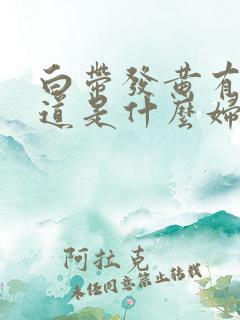 白帶發黃有
道是什麼婦
阿拉克
未經同意禁止轉載